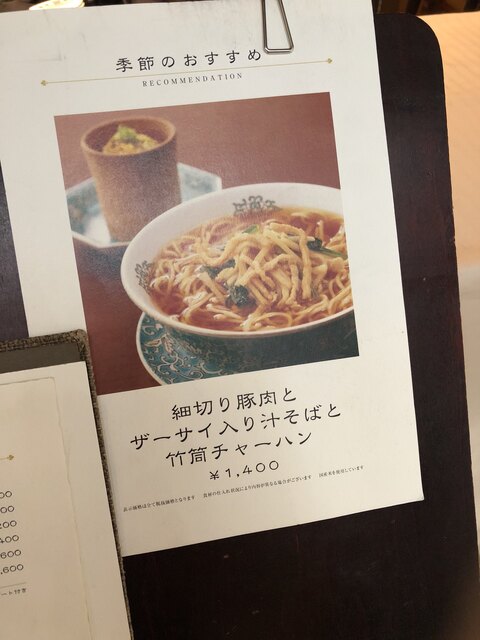 季節のおすすめ
RECOMMENDATION
細切り豚肉と
ザーサイ入り汁そばと
竹筒チャーハン
¥1,400
表示価格は全て税抜価格となります 食材の仕入れ状況により内容が異なる場合がございます 国産米を使用しています
00
00
200
400
,600
,600
ート付き